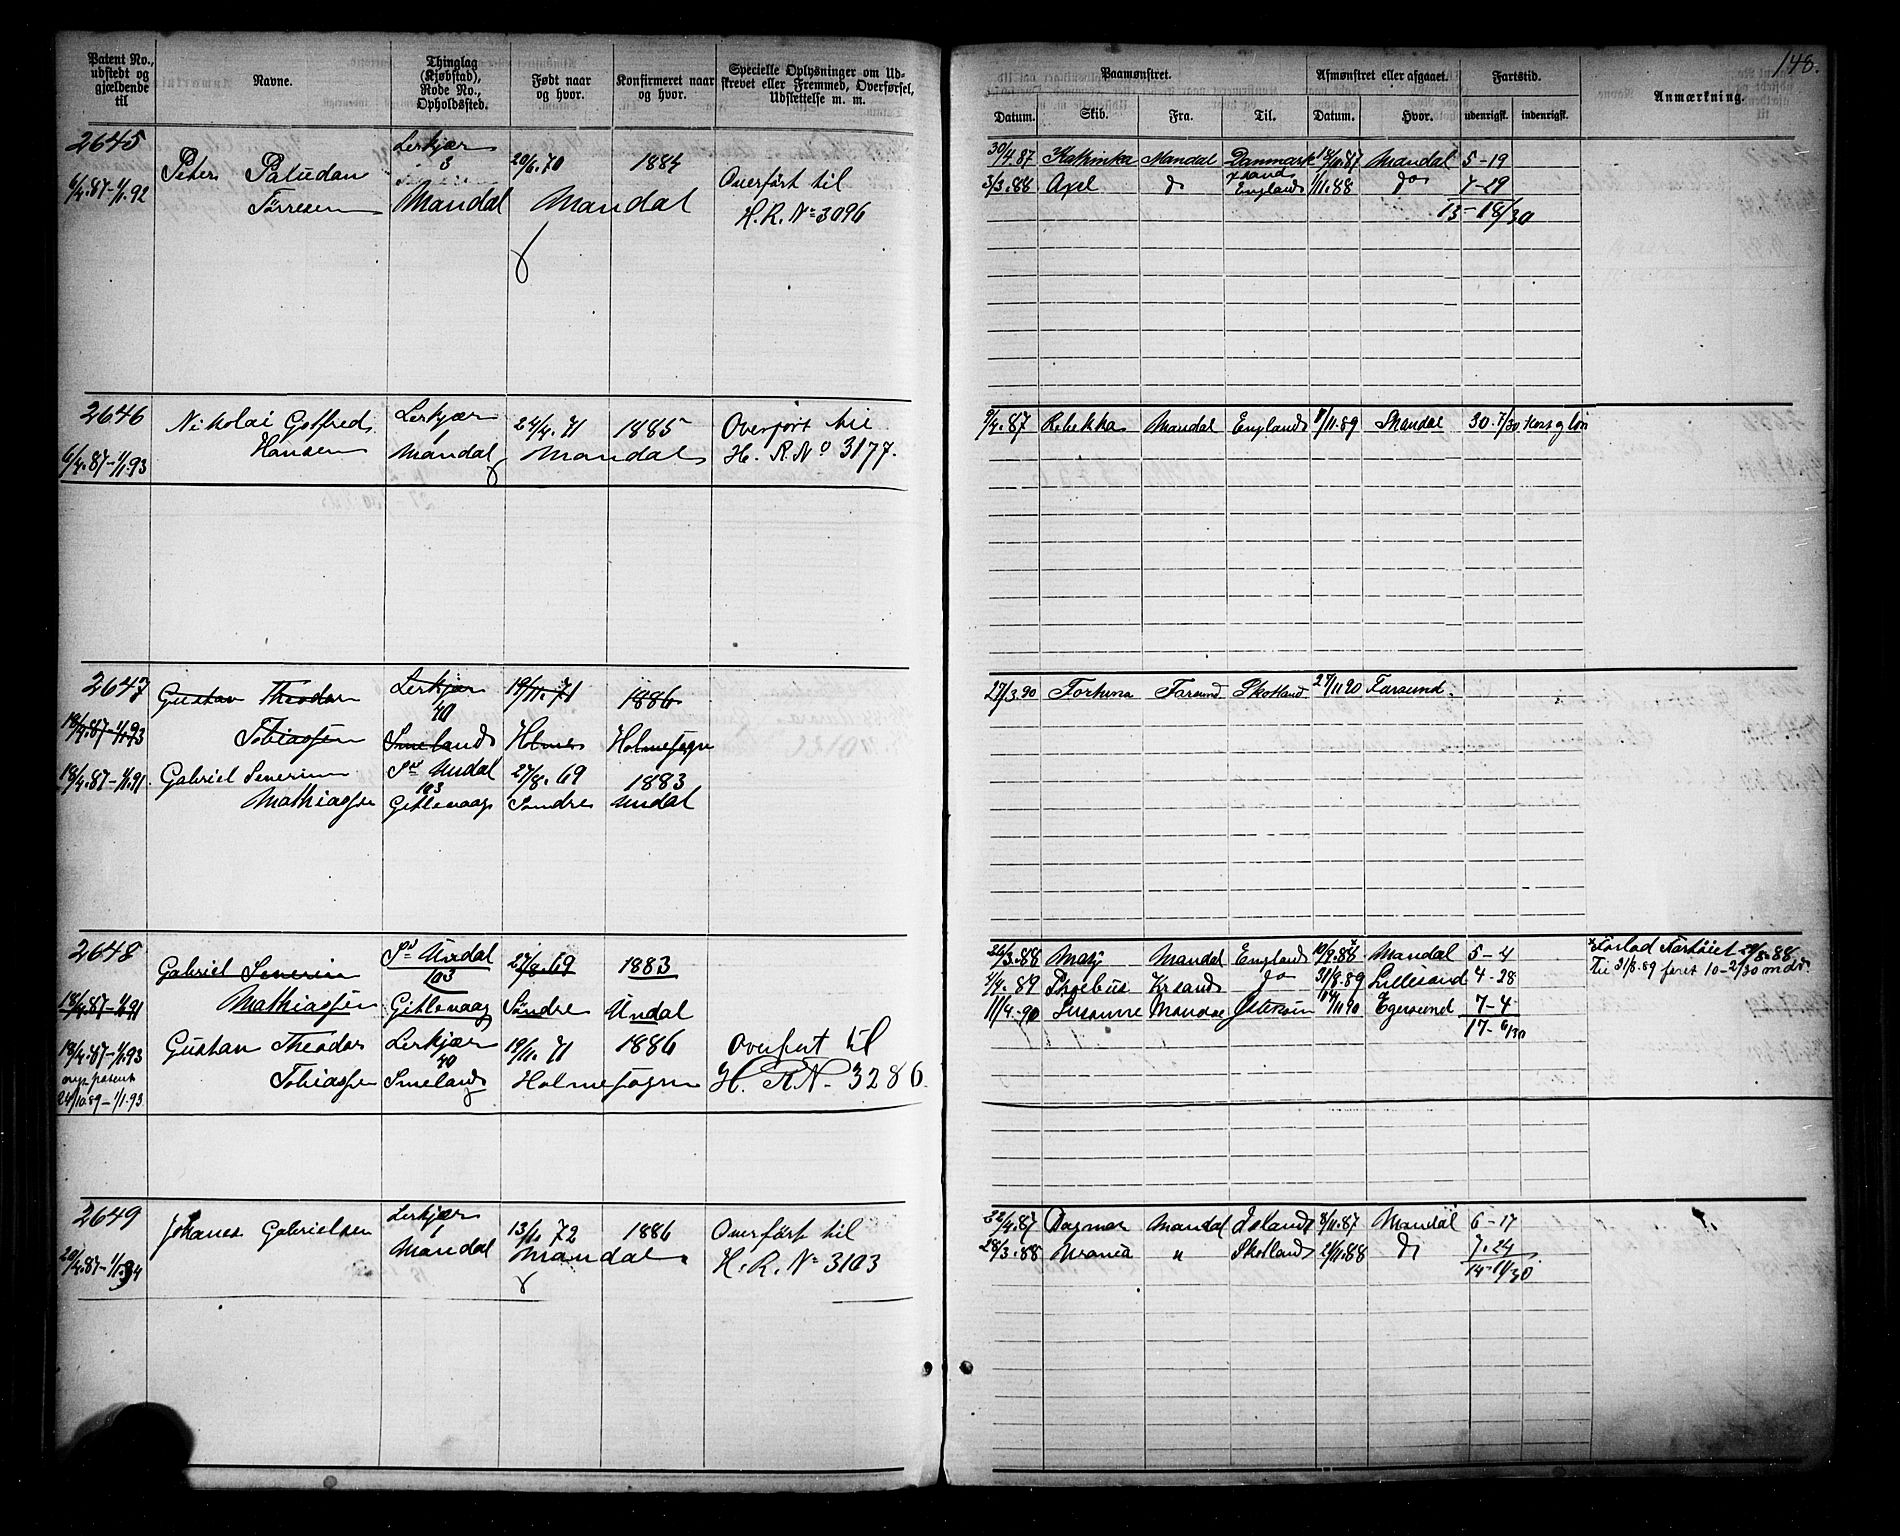 148.
Patent No., udstedt og gjældende til
Navne.
Thinglag (Kjøbstad), Rode No., Opholdssted.
Født naar og hvor.
Konfirmeret naar og hvor.
Specielle Oplysninger om Udskrevet eller Fremmed, Overførsel, Udslettelse m. m.
Paamønstret.
Afmønstret eller afgaaet.
Fartstid.
Anmærkning.
Datum. Skib. Fra. Til. Datum. Hvor. udenrigsk. indenrigsk.
2645 Lerkjær
Peter Paludan 3 20/6.70 1884 Overført til
6/4.87-1/1.92 Tørresen Mandal Mandal H. R. No 3096
30/4.87 Kathinka Mandal Danmark Mandal 5-19
3/3.88 Axel do England 1/11.88 do 7-29
13-18/30
2646 Nikolai Gotfred Lerkjær 24/4.71 1885 Overført til
Hansen 1
6/4.87-1/1.93 Mandal Mandal H. R. No 3177.
9/4.87 Rebekka Mandal England 7/11.89 Mandal 30.7/30
2647 Gustav Theodor Lerkjær 19/11.71 1886
40
18/4.87-1/1.93 Tobiassen Smeland Holme Holmesogn
18/4.87-1/1.91. Gabriel Severin Sd Undal 27/8.69 1883
103
Mathiassen Gitlevaag Søndre Undal
27/3.90 Fortuna Farsund Skotland 27/11.90 Farsund.
2648 Gabriel Severin Sd Undal 27/8.69 1883
103
18/4.87-1/1.91 Mathiassen Gitlevaag Søndre Undal
18/4.87-1/1.93 Gustav Theodor Lerkjær 19/11.71 1886 Overført til
40
Tobiassen Smeland Holmesogn H. R. N. 3286.
24/10.89-1/1.93
26/3.88 Mandal England Mandal 5-4
Forlod Fartøiet 29/8.88
4/4.89 Phoebus Krsand do 31/8.89 Lillesand 4-28
Til 31/8.89 faret 10-2/30 mdr.
11/4.90 Susanne Mandal Østersøen Egersund 7-4
17-6/30
2649 Johanes Gabrielsen Lerkjær 13/1.72 1886 Overført til
1
20/4.87-1/1.94 Mandal Mandal. H. R. No 3103
22/4.87 Dagmar Mandal Island 8/11.87 Mandal 6-17
28/3.88 Urania " Skotland 21/11.88 do 7.24
14-11/30